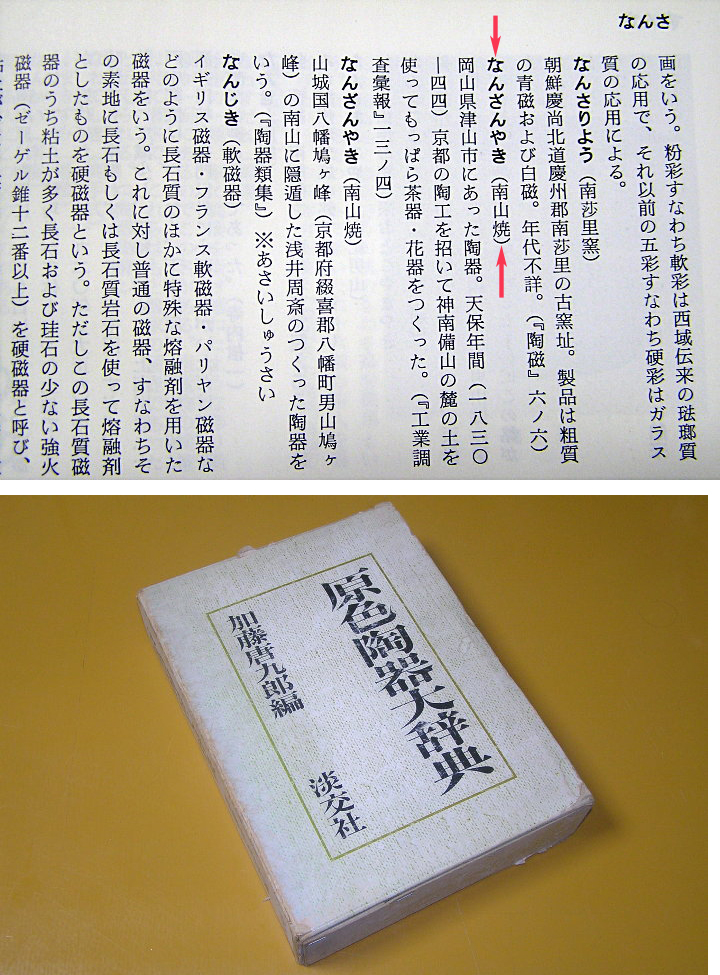 なんさ
画をいう。粉彩すなわち軟彩は西域伝来の琺瑯質
の応用で、それ以前の五彩すなわち硬彩はガラス
質の応用による。
なんさりよう（南莎里窯）
朝鮮慶尚北道慶州郡南莎里の古窯址。製品は粗質
の青磁および白磁。年代不詳。（『陶磁』六ノ六）
なんざんやき（南山焼）
岡山県津山市にあった陶器。天保年間（一八三〇
―四四）京都の陶工を招いて神南備山の麓の土を
使ってもっぱら茶器・花器をつくった。（『工業調
査彙報』一三ノ四）
なんざんやき（南山焼）
山城国八幡鳩ヶ峰（京都府綴喜郡八幡町男山鳩ヶ
峰）の南山に隠遁した浅井周斎のつくった陶器を
いう。（『陶器類集』）※あさいしゅうさい
なんじき（軟磁器）
イギリス磁器・フランス軟磁器・パリヤン磁器な
どのように長石質のほかに特殊な熔融剤を用いた
磁器をいう。これに対し普通の磁器、すなわちそ
の素地に長石もしくは長石質岩石を使って熔融剤
としたものを硬磁器という。ただしこの長石質磁
器のうち粘土が多く長石および珪石の少ない強火
磁器（ゼーゲル錐十二番以上）を硬磁器と呼び、
原色陶器大辞典
加藤唐九郎編
淡交社